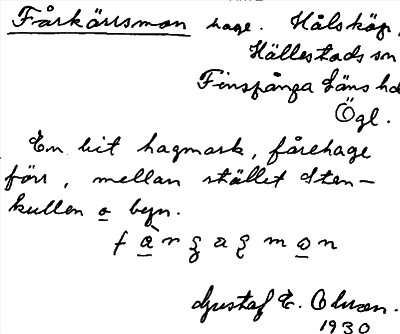 Fårkärrsmon hage. Hålsköp,
Hällestads sn
Finspånga läns hd
Ögl.
En bit hagmark, fårehage
förr, mellan stället Sten-
kullen o byn.
Gustaf E. Olsson.
1930